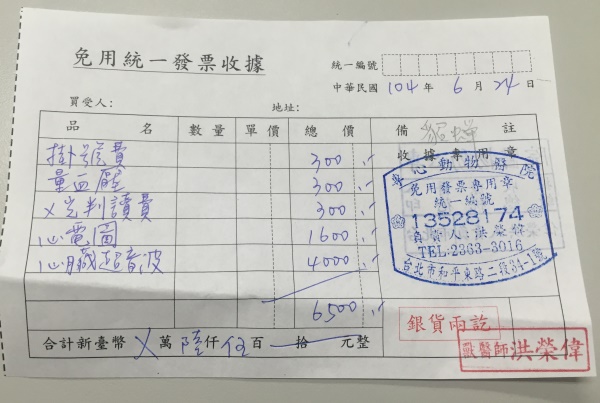 免用統一發票收據
統一編號
中華民國 104 年 6 月 24 日
買受人： 地址：
品名 數量 單價 總價 備註
貂蟬
收據專用章
掛號費 300
量血壓 300
X光判讀費 300
心電圖 1600
心臟超音波 4000
6500
專心動物醫院
免用發票專用章
統一編號
13528174
負責人：洪榮偉
TEL:2363-3016
台北市和平東路二段34-1號
銀貨兩訖
合計新臺幣 X 萬 陸 仟 伍 百 拾 元整
獸醫師 洪榮偉